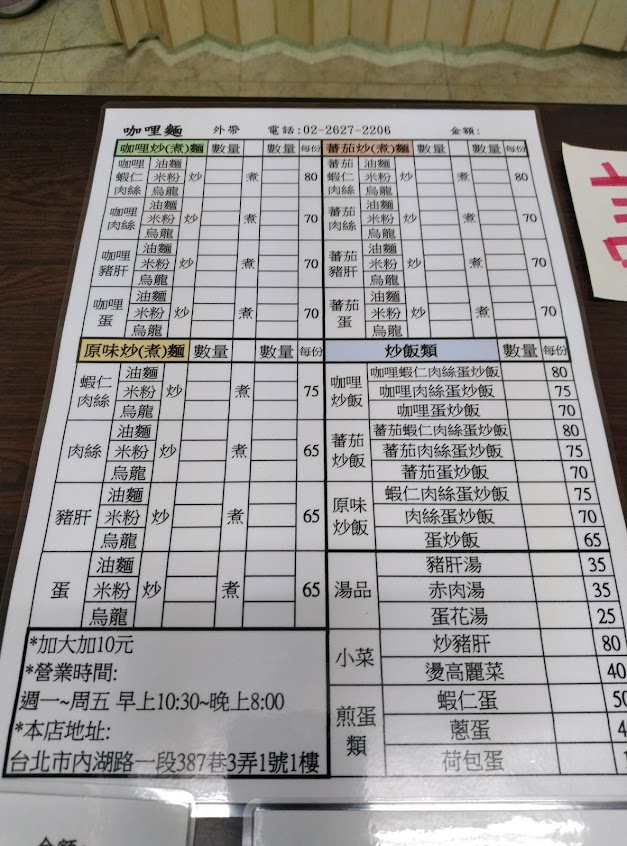 咖哩麵 外帶 電話:02-2627-2206 金額:
咖哩炒(煮)麵 數量 數量 每份
咖哩蝦仁肉絲 油麵 米粉 烏龍 炒 煮 80
咖哩肉絲 油麵 米粉 烏龍 炒 煮 70
咖哩豬肝 油麵 米粉 烏龍 炒 煮 70
咖哩蛋 油麵 米粉 烏龍 炒 煮 70
蕃茄炒(煮)麵 數量 數量 每份
蕃茄蝦仁肉絲 油麵 米粉 烏龍 炒 煮 80
蕃茄肉絲 油麵 米粉 烏龍 炒 煮 70
蕃茄豬肝 油麵 米粉 烏龍 炒 煮 70
蕃茄蛋 油麵 米粉 烏龍 炒 煮 70
原味炒(煮)麵 數量 數量 每份
蝦仁肉絲 油麵 米粉 烏龍 炒 煮 75
肉絲 油麵 米粉 烏龍 炒 煮 65
豬肝 油麵 米粉 烏龍 炒 煮 65
蛋 油麵 米粉 烏龍 炒 煮 65
炒飯類 數量 每份
咖哩炒飯
咖哩蝦仁肉絲蛋炒飯 80
咖哩肉絲蛋炒飯 75
咖哩蛋炒飯 70
蕃茄炒飯
蕃茄蝦仁肉絲蛋炒飯 80
蕃茄肉絲蛋炒飯 75
蕃茄蛋炒飯 70
原味炒飯
蝦仁肉絲蛋炒飯 75
肉絲蛋炒飯 70
蛋炒飯 65
湯品
豬肝湯 35
赤肉湯 35
蛋花湯 25
小菜
炒豬肝 80
燙高麗菜 40
煎蛋類
蝦仁蛋
蔥蛋
荷包蛋
*加大加10元
*營業時間:
週一~周五 早上10:30~晚上8:00
*本店地址:
台北市內湖路一段387巷3弄1號1樓